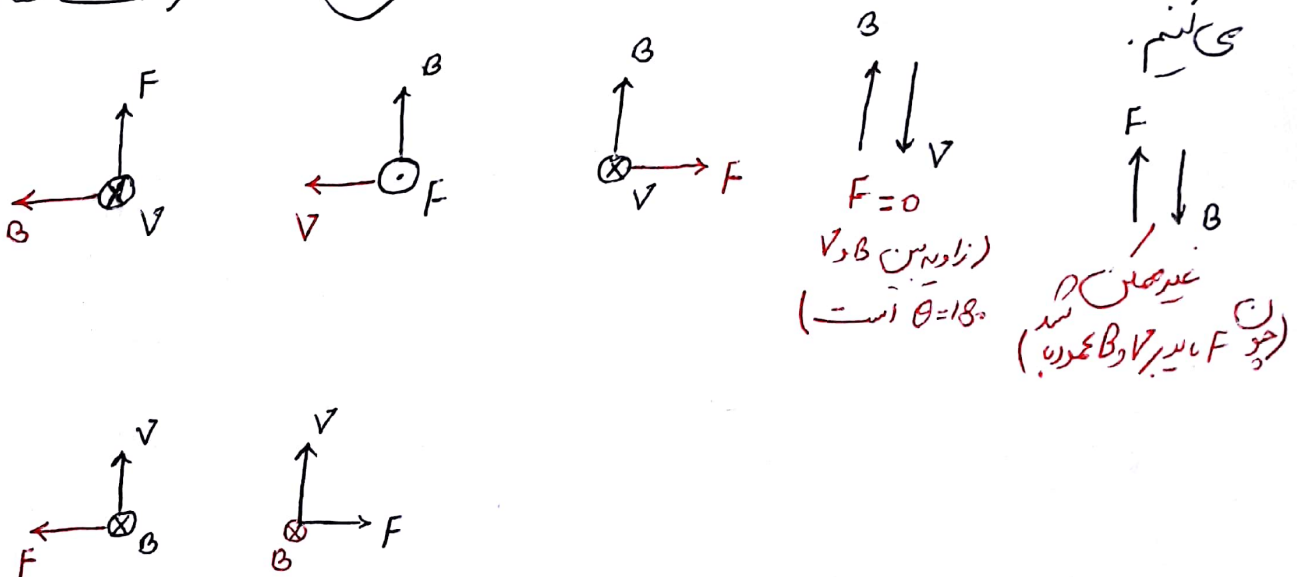 می‌کنیم.
F
B
V
B
F
V
B
V
F
B
V
F=0
(زاویه بین B و V
θ=180 است)
F
B
غیرممکن
(چون F باید بر V و B عمود باشد)
V
B
F
V
B
F